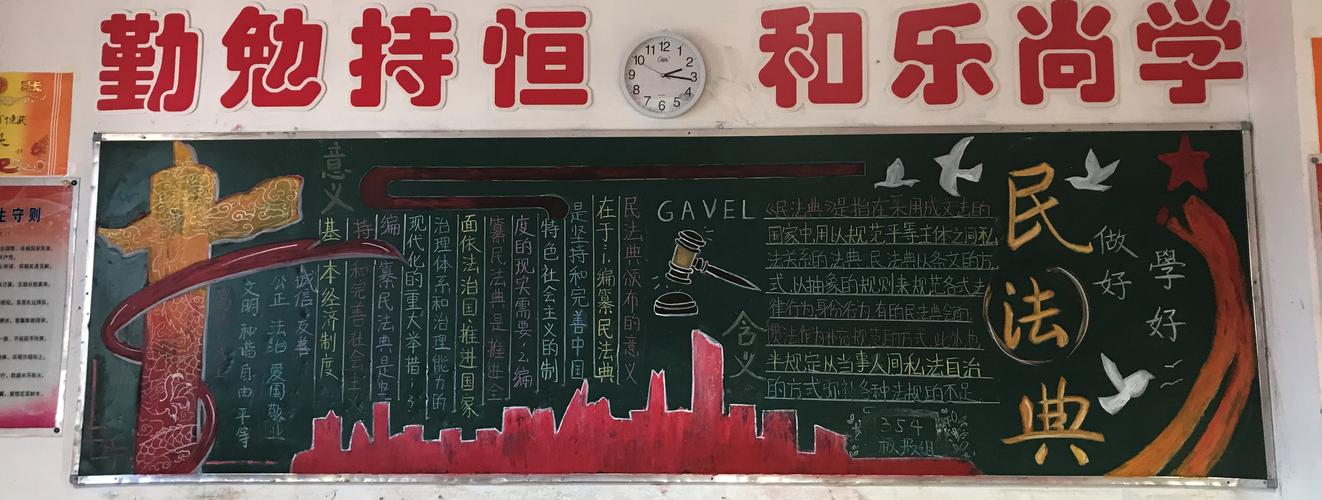 勤勉持恒 和乐尚学
生守则
民法典
做好
學好
GAVEL
含义
《民法典》是指在采用成文法的
国家中,用以规范平等主体之间私
法关系的法典,民法典以条文的方
式,以抽象的规则来规范各式法
律行为身份行为,有的民法典会而
惯法作为补充规范的方式,此外也
半规定从当事人间私法自治
的方式弥补各种法规的不足
354
板报组
意义
民法典颁布的意义
在于:1.编纂民法典
是坚持和完善中国
特色社会主义的制
度的现实需要;2.编
纂民法典是推进全
面依法治国推进国家
治理体系和治理能力的
现代化的重大举措;3.
编纂民法典是坚
持和完善社会主义
基本经济制度
诚信 友善
公正 法治 爱国 敬业
文明 和谐 自由 平等
12
1
2
3
4
5
6
7
8
9
10
11